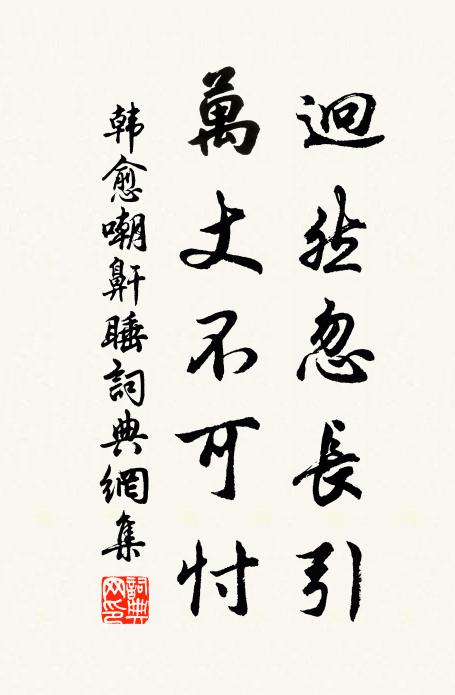 迥然忽長引
萬丈不可忖
韓愈嘲鼾睡詞典網集
詞典網印